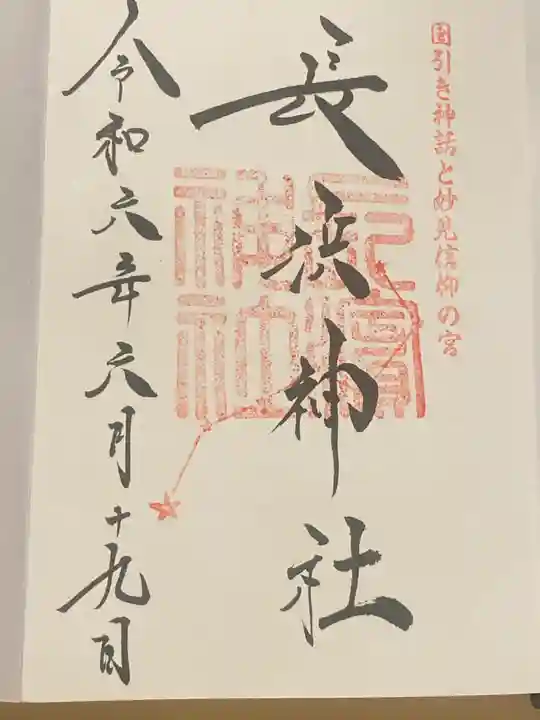 国引き神話と妙見信仰の宮
長浜神社
長濱神社
令和六年六月十九日